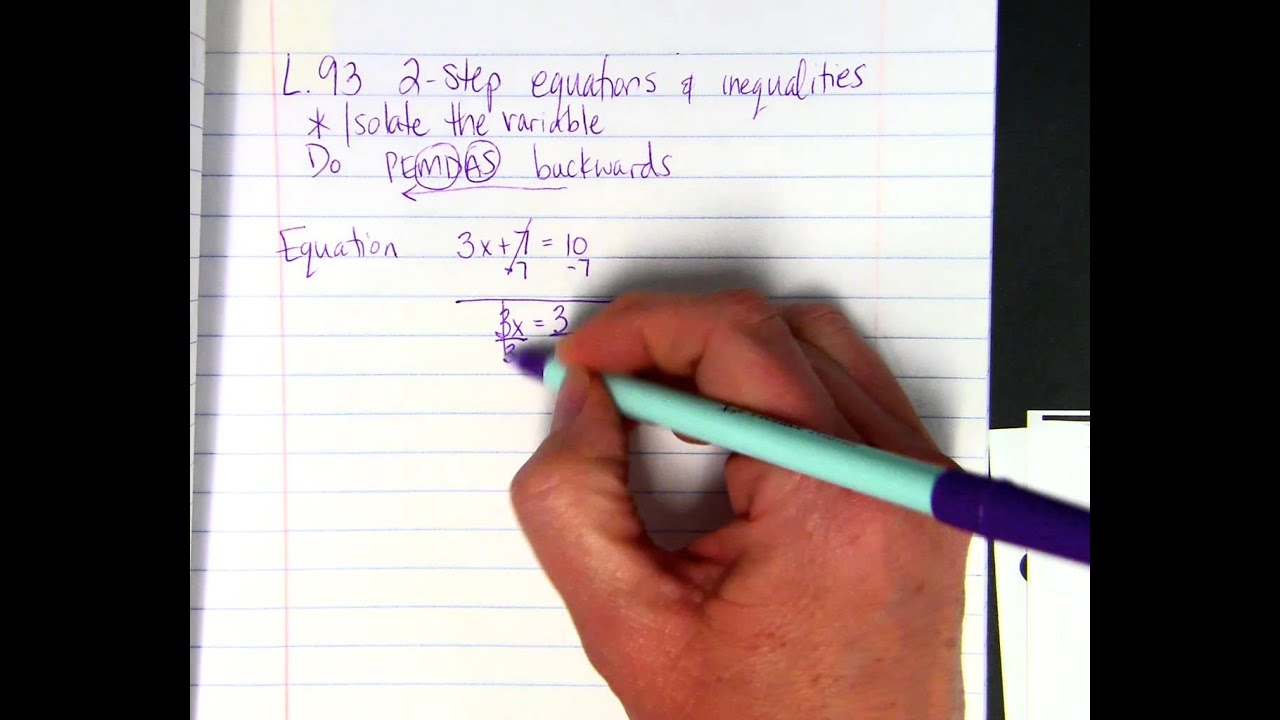 L.93 2-step equations & inequalities
* Isolate the variable
Do PEMDAS backwards
Equation 3x+7 = 10
-7 -7
3x = 3
3